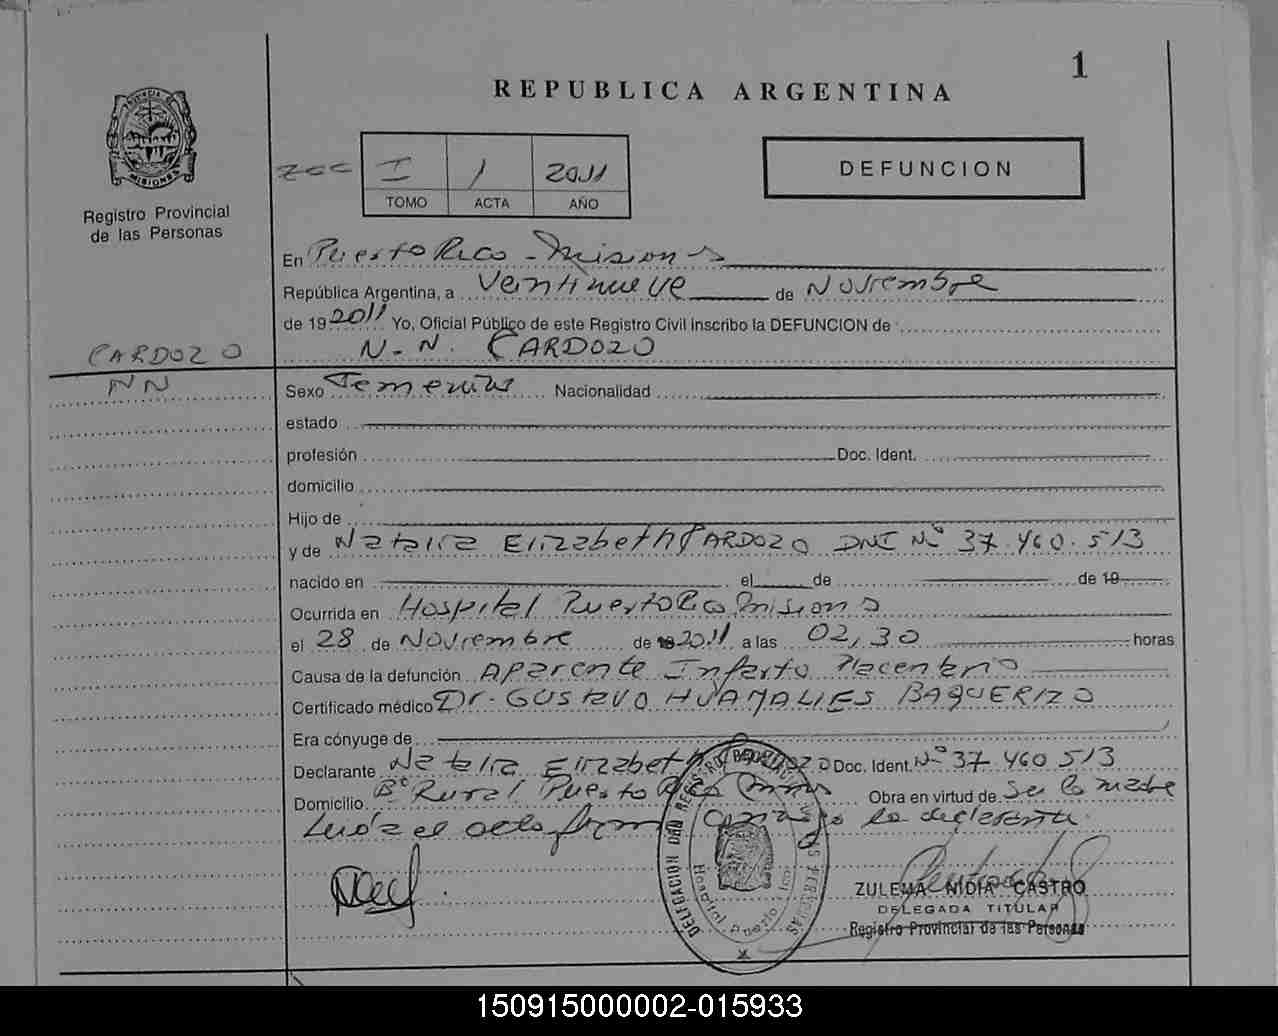 1
REPUBLICA ARGENTINA
PROVINCIA DE
MISIONES
Registro Provincial
de las Personas
I 1 2011
TOMO ACTA AÑO
DEFUNCION
En Puerto Rico - Misiones
República Argentina, a Veintinueve de Noviembre
de 19 2011 Yo, Oficial Público de este Registro Civil inscribo la DEFUNCION de
CARDOZO N-N. CARDOZO
NN
Sexo Femenino Nacionalidad
estado
profesión Doc. Ident.
domicilio
Hijo de
y de Natalia Elizabeth CARDOZO DNI Nº 37.460.513
nacido en el de de 19
Ocurrida en Hospital Puerto Rico Misiones
el 28 de Noviembre de 2011 a las 02,30 horas
Causa de la defunción Aparente Infarto Placentario
Certificado médico Dr. GUSTAVO HUAMALIES BAQUERIZO
Era cónyuge de
Declarante Natalia Elizabeth Cardozo Doc. Ident. Nº 37 460 513
Domicilio Bº Rural Puerto Rico Mnes Obra en virtud de ser la madre
Leída el acta firma conmigo la declarante
DELEGACIÓN DEL REGISTRO PROVINCIAL DE LAS PERSONAS
Hospital Puerto Rico
ZULEMA NIDIA CASTRO
DELEGADA TITULAR
Registro Provincial de las Personas
150915000002-015933